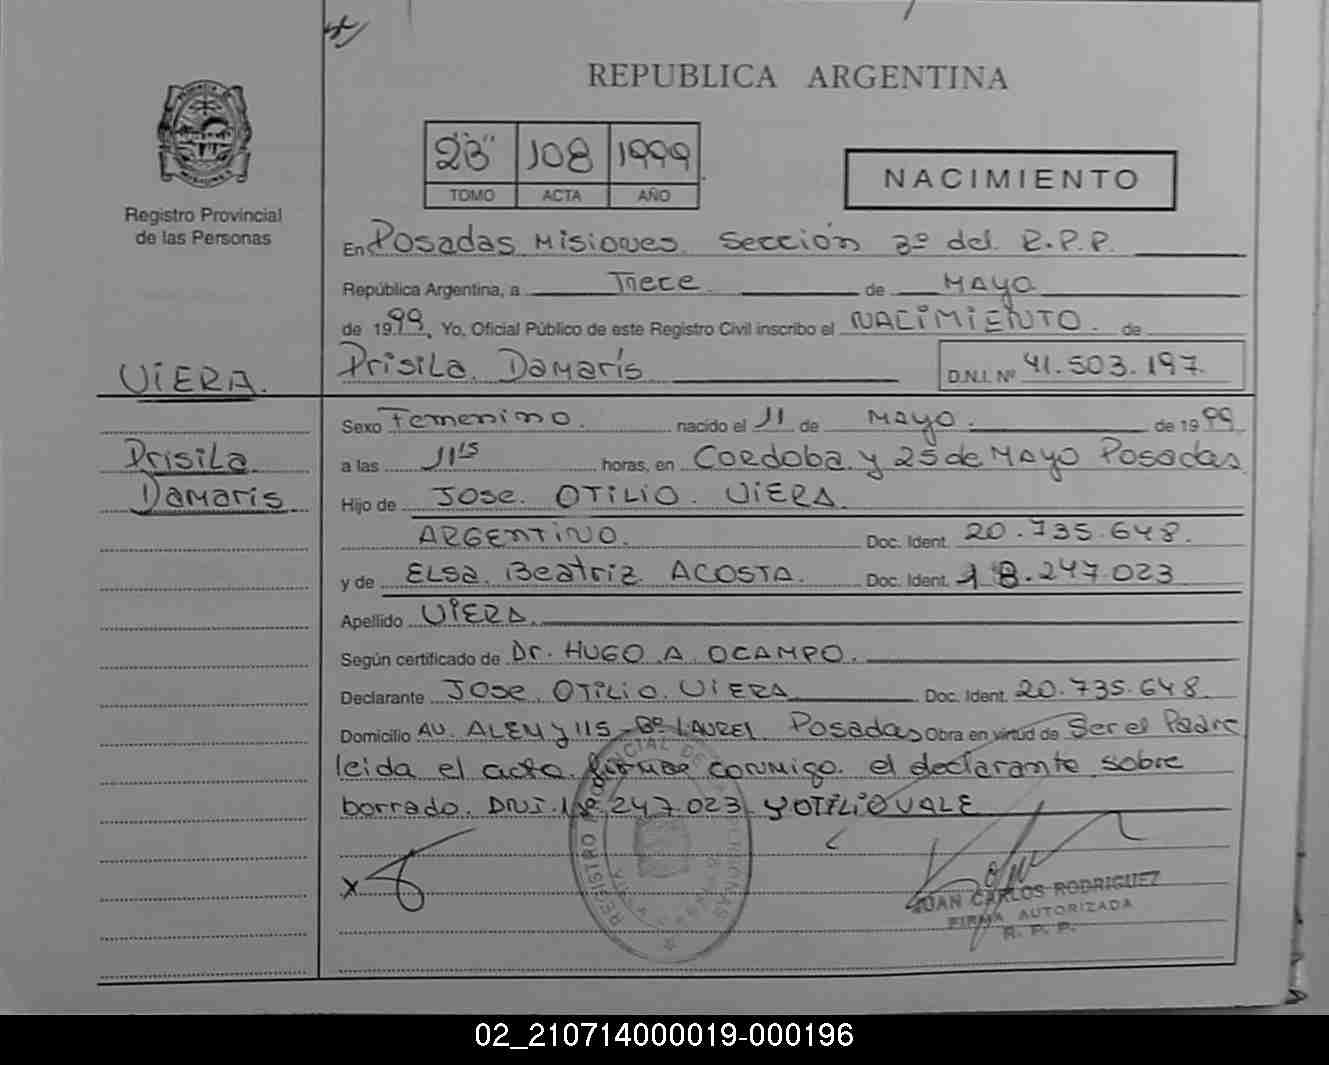 REPUBLICA ARGENTINA
"2B" 108 1999
TOMO ACTA AÑO
NACIMIENTO
Registro Provincial
de las Personas
En Posadas Misiones Sección 3º del R.P.P.
República Argentina, a Trece de MAYO
de 1999, Yo, Oficial Público de este Registro Civil inscribo el NACIMIENTO de
Prisila Damarís D.N.I. Nº 41.503.197
VIERA.
Prisila
Damaris
Sexo Femenino. nacido el 11 de MAYO de 1999
a las 11 15 horas, en CORDOBA y 25 de MAYO Posadas
Hijo de JOSE OTILIO VIERA
ARGENTINO. Doc. Ident. 20.735.648.
y de ELSA Beatriz ACOSTA. Doc. Ident. 18.247.023
Apellido VIERA.
Según certificado de Dr. HUGO A OCAMPO.
Declarante JOSE OTILIO VIERA Doc. Ident. 20.735.648
Domicilio AV. ALEM y 115 Bº LAUREL Posadas Obra en virtud de Ser el Padre
leida el acta firmae conmigo el declarante sobre
borrado. DNI. 18.247.023 y OTILIO VALE
X
REGISTRO PROVINCIAL DE LAS PERSONAS
JUAN CARLOS RODRIGUEZ
FIRMA AUTORIZADA
R. P. P.
02_210714000019-000196